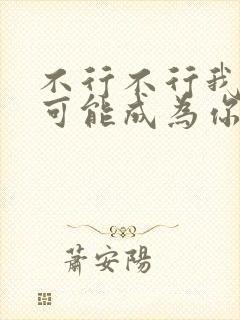 不行不行我
可能成为你
蕭安陽